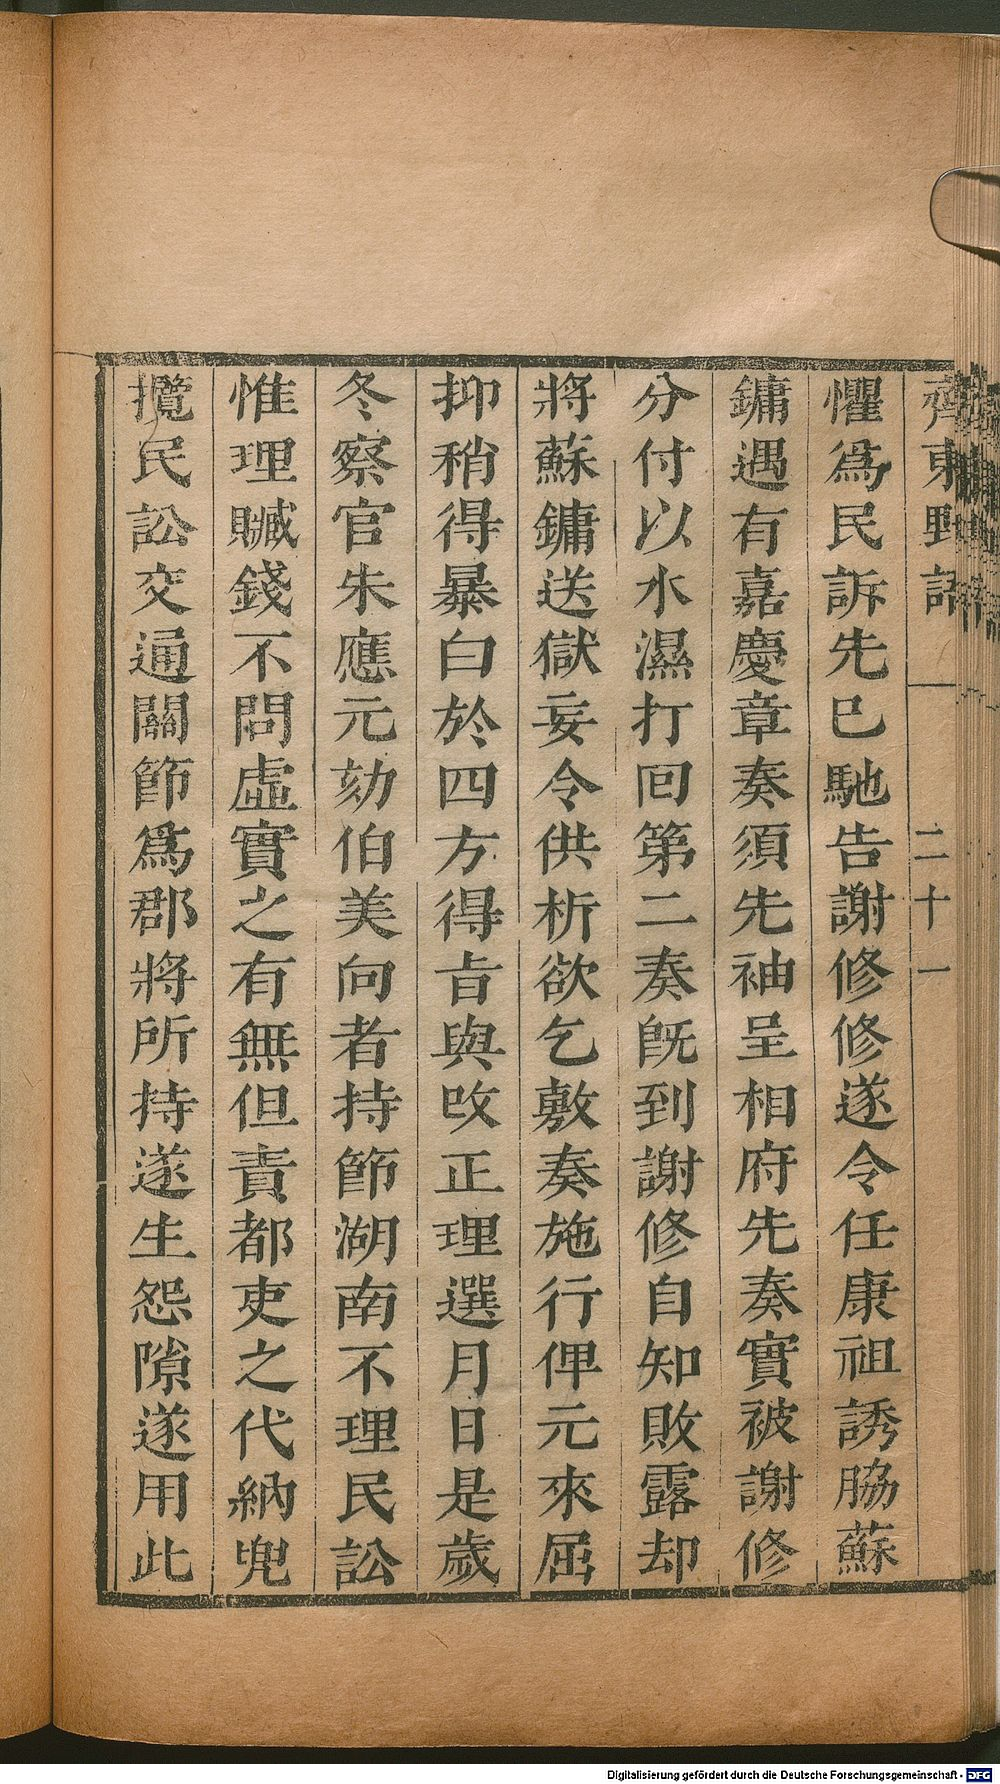 齊東野語
二十一
懼爲民訴先已馳告謝修修遂令任康祖誘脇蘇
鏞遇有嘉慶章奏須先袖呈相府先奏實被謝修
分付以水濕打回第二奏旣到謝修自知敗露却
將蘇鏞送獄妄令供析欲乞敷奏施行俾元來屈
抑稍得暴白於四方得旨與改正理選月日是歲
冬察官朱應元劾伯美向者持節湖南不理民訟
惟理贓錢不問虛實之有無但責都吏之代納兜
攬民訟交通關節爲郡將所持遂生怨隙遂用此
Digitalisierung gefördert durch die Deutsche Forschungsgemeinschaft - DFG